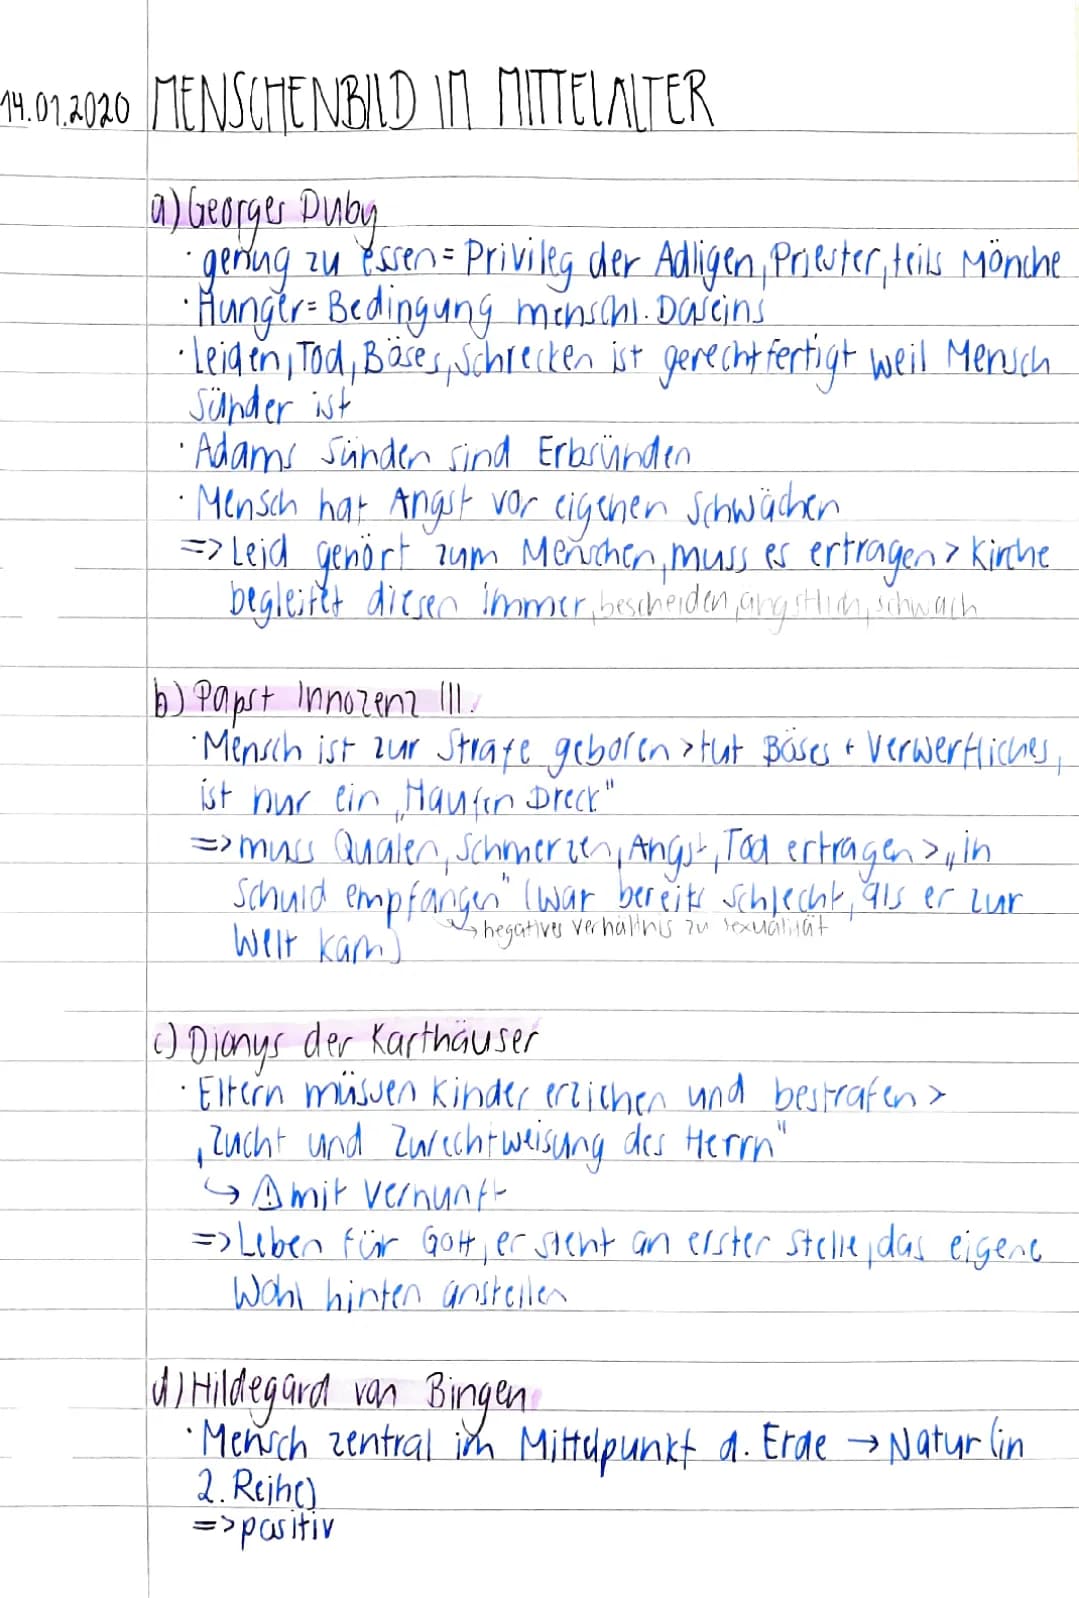 14.01.2020 MENSCHENBILD IM MITTELALTER
a) Georges Duby
· genug zu essen = Privileg der Adligen, Priester, teils Mönche
· Hunger = Bedingung menschl. Daseins
· Leiden, Tod, Böses, Schrecken ist gerechtfertigt weil Mensch
Sünder ist
· Adams Sünden sind Erbsünden
· Mensch hat Angst vor eigenen Schwächen
=> Leid gehört zum Menschen, muss es ertragen > Kirche
begleitet diesen immer, bescheiden, ängstlich, schwach
b) Papst Innozenz III.
· Mensch ist zur Strafe geboren > tut Böses + Verwerfliches,
ist nur ein „Haufen Dreck"
=> muss Qualen, Schmerzen, Angst, Tod ertragen > „in
Schuld empfangen" (war bereits schlecht, als er zur
↳ negatives Verhältnis zu Sexualität
Welt kam)
c) Dionys der Karthäuser
· Eltern müssen Kinder erziehen und bestrafen >
„Zucht und Zurechtweisung des Herrn"
↳ ⚠ mit Vernunft
=> Leben für Gott, er steht an erster Stelle, das eigene
Wohl hinten anstellen
d) Hildegard von Bingen
· Mensch zentral im Mittelpunkt d. Erde → Natur (in
2. Reihe)
=> positiv